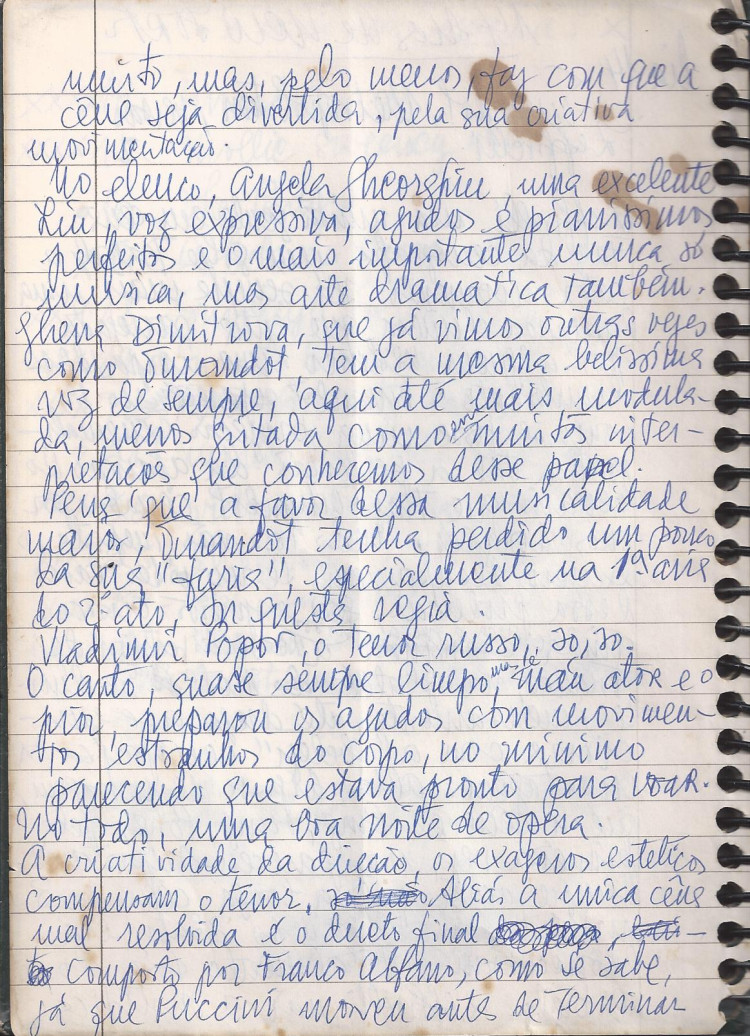 muito, mas, pelo menos, faz com que a
cena seja divertida, pela sua criativa
movimentação.
No elenco, Angela Gheorghiu, uma excelente
Liu, voz expressiva, agudos e pianissimos
perfeitos e o mais importante nunca só
musica, mas arte dramatica também.
Ghena Dimitrova, que já vimos outras vezes
como Turandot, tem a mesma belissima
voz de sempre, aqui até mais modula-
da, menos gritada como em muitas inter-
pretações que conhecemos desse papel.
Pena que a favor dessa musicalidade
maior, Turandot tenha perdido um pouco
da sua "furia", especialmente na 1ª aria
do 2º ato, In questa regia.
Vladimir Popov, o tenor russo, so, so.
O canto, quase sempre limpo, mas é mau ator e o
pior, preparou os agudos com movimen-
tos estranhos do corpo, no minimo
parecendo que estava pronto para voar.
No todo, uma boa noite de opera.
A criatividade da direcção, os exageros esteticos
compensam o tenor. Aliás a unica cena
mal resolvida é o dueto final
composto por Franco Alfano, como se sabe,
já que Puccini morreu antes de terminar